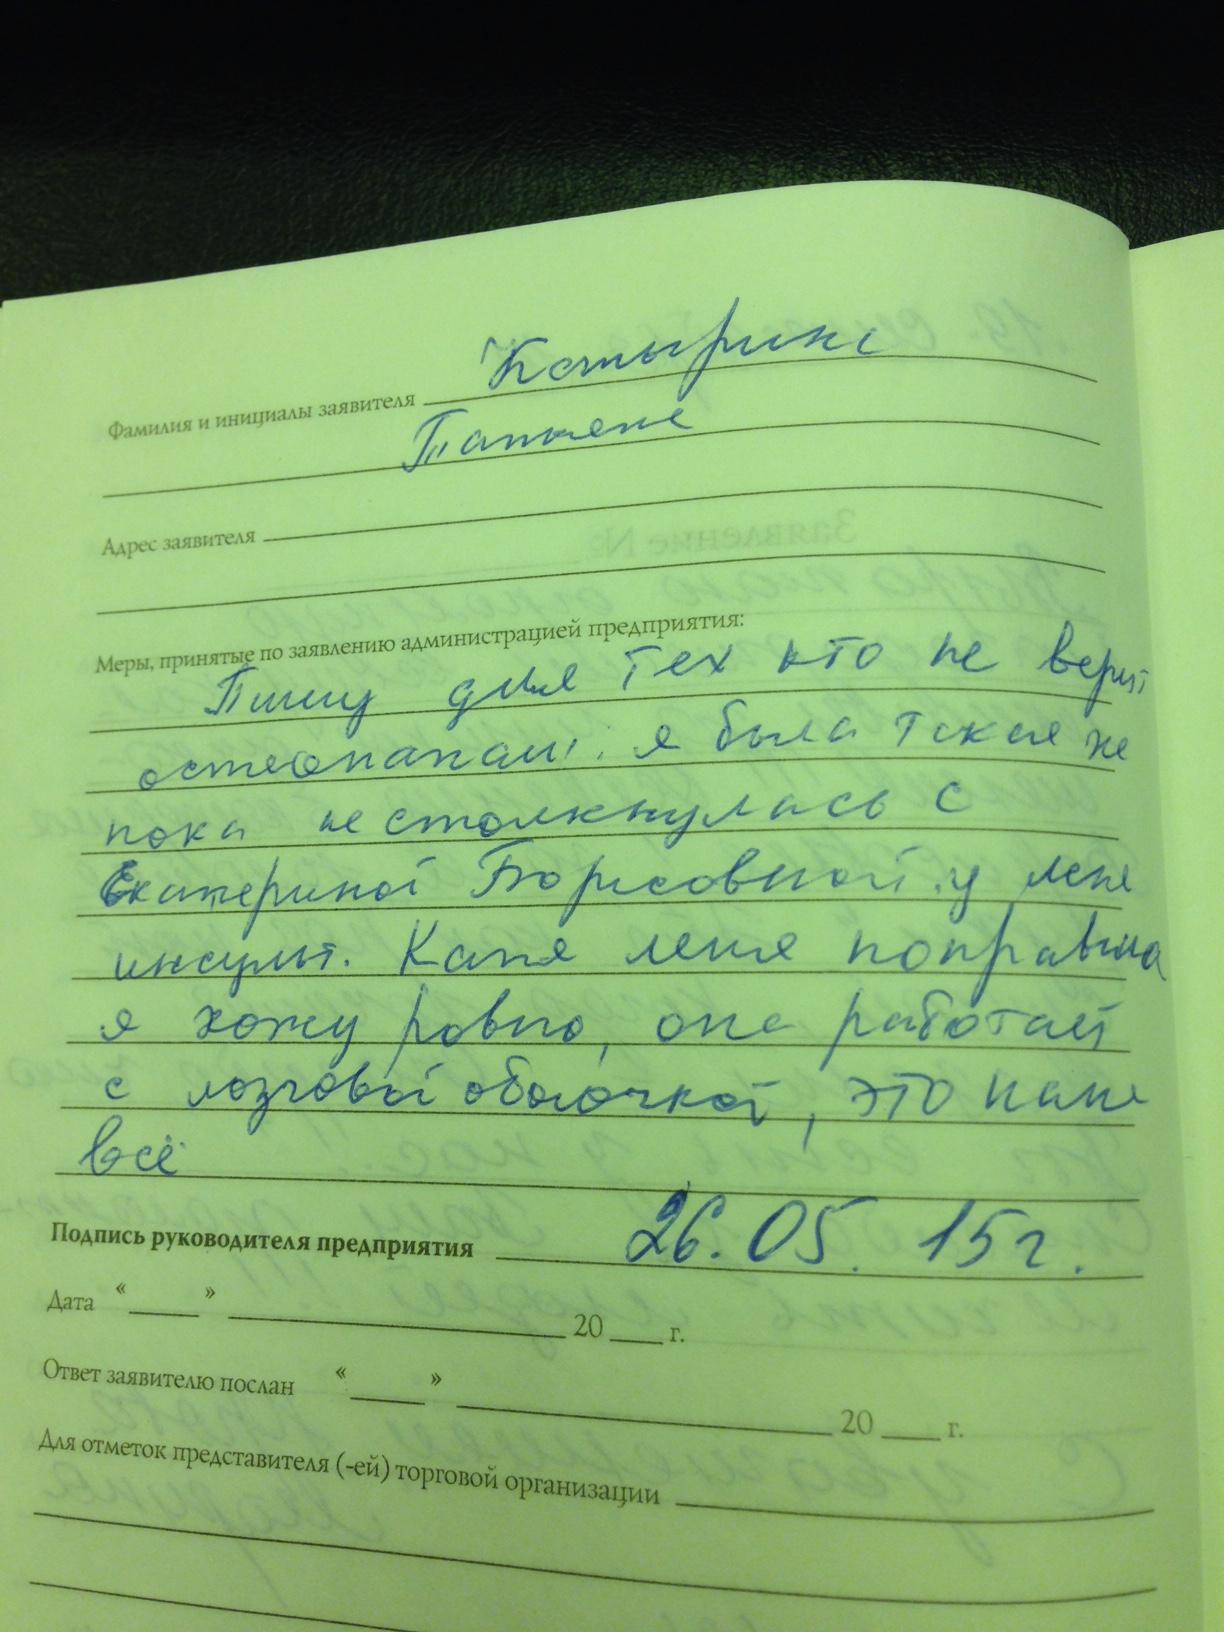 Фамилия и инициалы заявителя Катырина
Татьяна
Адрес заявителя
Меры, принятые по заявлению администрацией предприятия:
Пишу для тех кто не верит
остеопатам. я была такая же
пока не столкнулась с
Екатериной Борисовной. у меня
инсульт. Катя меня поправила
я хожу ровно, она работает
с мозговой оболочкой, это наше
всё
Подпись руководителя предприятия 26.05.15г.
Дата « » 20 г.
Ответ заявителю послан « » 20 г.
Для отметок представителя (-ей) торговой организации